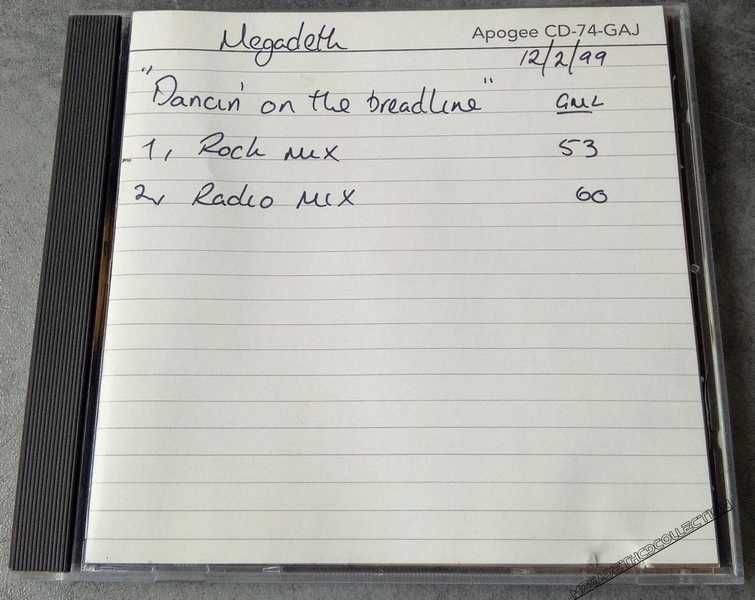 Megadeth Apogee CD-74-GAJ
12/2/99
"Dancin' on the breadline" GML
1, Rock mix 53
2, Radio mix 60
MEGADETHCDCOLLECTION